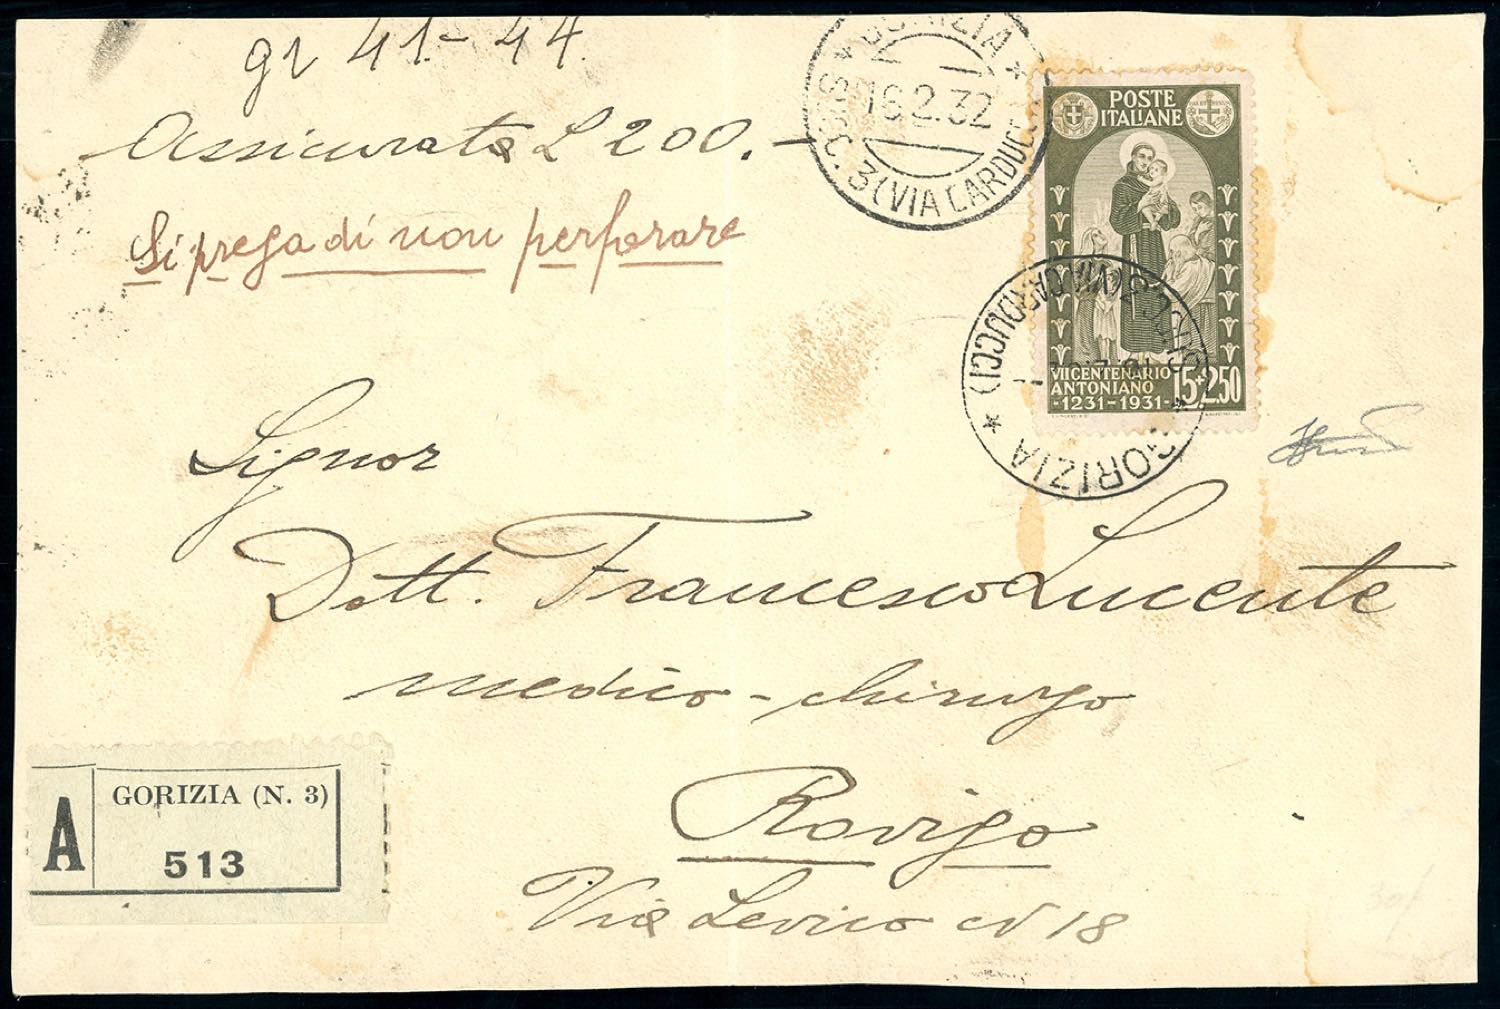 gr 41.- 44.
Assicurata L 200.-
Si prega di non perforare
GORIZIA
16.2.32
SUCC. 3 (VIA CARDUCCI)
POSTE
ITALIANE
VII CENTENARIO
ANTONIANO
-1231-1931-
15+2.50
SUCC. 3 (VIA CARDUCCI)
GORIZIA
Signor
Dott. Francesco Lucente
medico-chirurgo
Rovigo
Via Levico N 18
A
GORIZIA (N. 3)
513